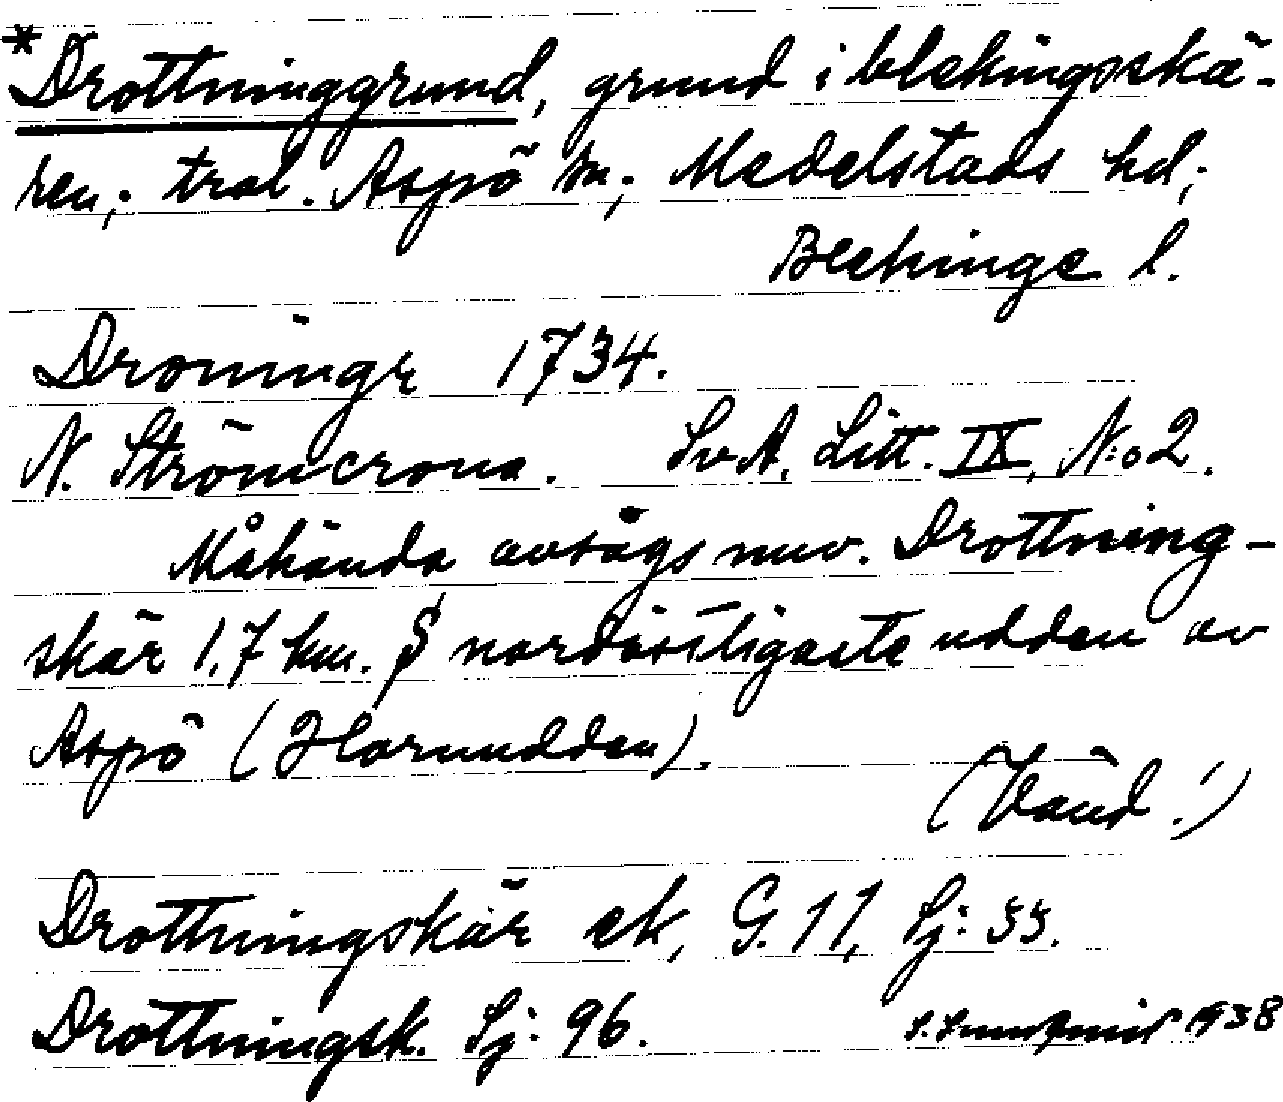 *Drottninggrund, grund i blekingsskä-
ren; trol. Aspö sn; Medelstads hd;
Blekinge l.
Droningr 1734.
N. Strömcrona. SvA, Litt. IX, N:o 2.
Måhända avsågs nuv. Drottning-
skär 1,7 km. S nordöstligaste udden av
Aspö (Hornudden).
(Vänd!)
Drottningskär ek, G. 11, Sj: 55.
Drottningsk. Sj: 96. 1938